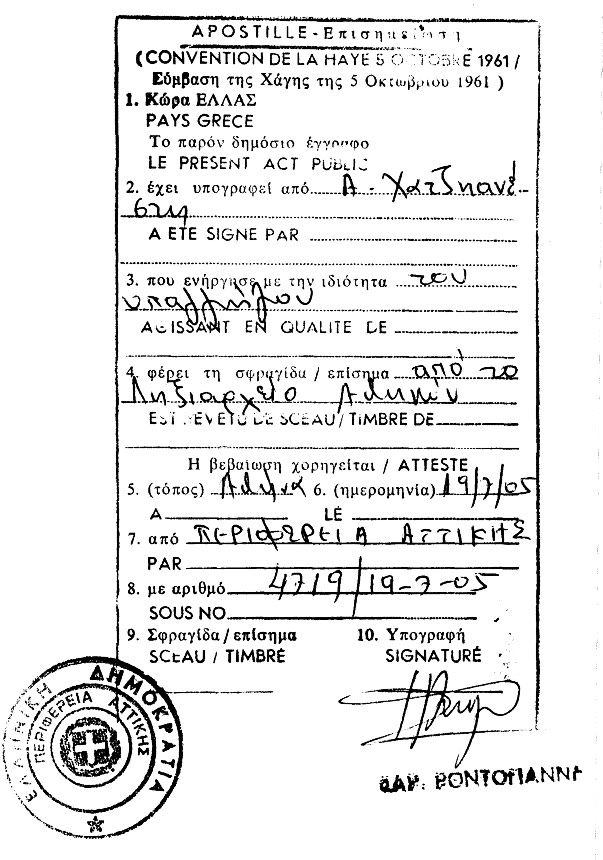 APOSTILLE - Επισημείωση
(CONVENTION DE LA HAYE 5 OCTOBRE 1961 /
Σύμβαση της Χάγης της 5 Οκτωβρίου 1961 )
1. Κώρα ΕΛΛΑΣ
PAYS GRECE
Το παρόν δημόσιο έγγραφο
LE PRESENT ACT PUBLIC
2. έχει υπογραφεί από Α - Χατζηανέ-
στη
A ETE SIGNE PAR
3. που ενήργησε με την ιδιότητα του
υπαλλήλου
AGISSANT EN QUALITE DE
4. φέρει τη σφραγίδα / επίσημα από το
Ληξιαρχείο Αθηνών
EST REVETU DE SCEAU / TIMBRE DE
Η βεβαίωση χορηγείται / ATTESTE
5. (τόπος) Αθήνα 6. (ημερομηνία) 19/7/05
A LE
7. από ΠΕΡΙΦΕΡΕΙΑ ΑΤΤΙΚΗΣ
PAR
8. με αριθμό 4719/19-7-05
SOUS NO
9. Σφραγίδα / επίσημα 10. Υπογραφή
SCEAU / TIMBRÉ SIGNATURÉ
ΕΛΛΗΝΙΚΗ ΔΗΜΟΚΡΑΤΙΑ
ΠΕΡΙΦΕΡΕΙΑ ΑΤΤΙΚΗΣ
ΒΟΝΤΟΓΙΑΝΝΗ